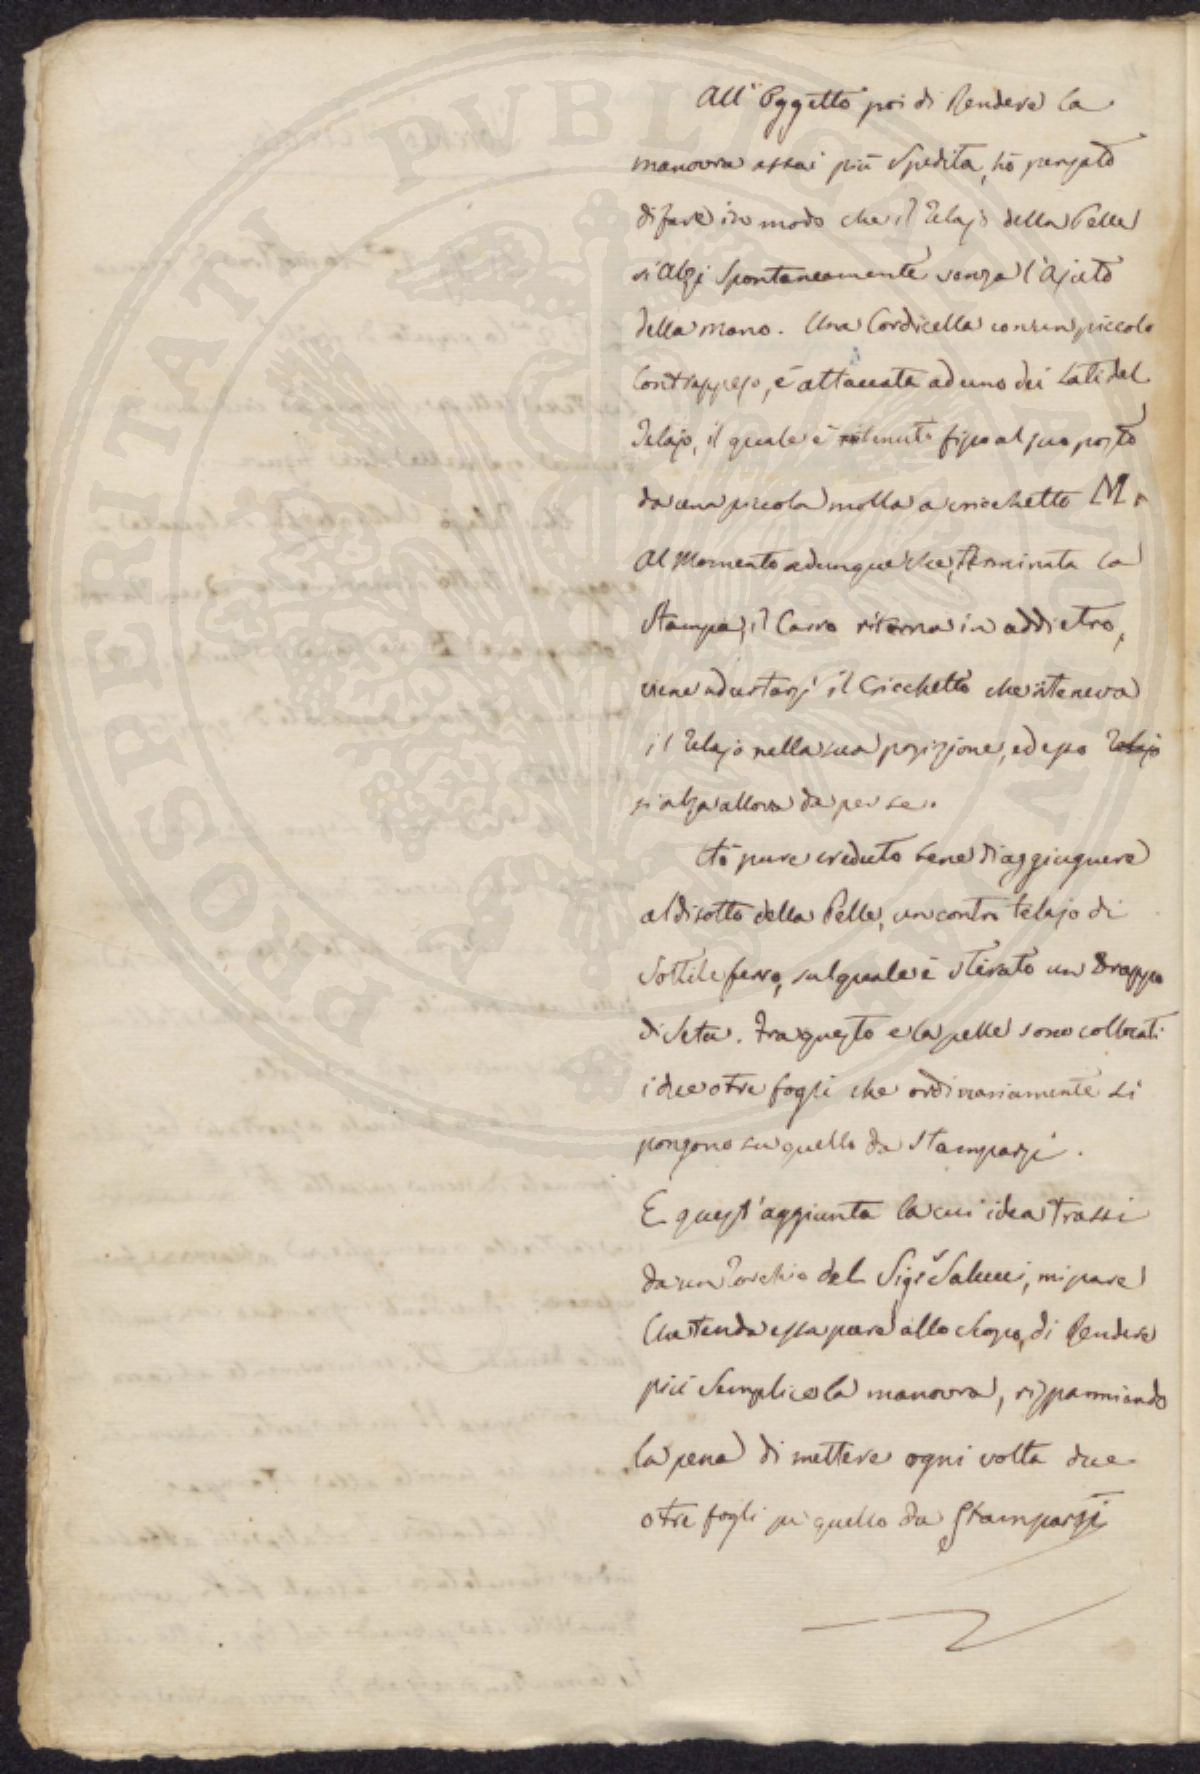 PROSPERITATI PVBLICAE
All'Oggetto poi di Rendere la
manovra assai più Spedita, hò pensato
di fare in modo che il Telajo della Pelle
si Alzi Spontaneamente senza l'Ajuto
della mano. Una Cordicella con un piccolo
Contrappeso, è attaccata ad uno dei Lati del
Telajo, il quale è ritenuto fisso al suo posto
da una piccola molla a cricchetto M.
Al Momento adunque che, terminata la
Stampa, il Carro ritorna in addietro,
viene ad urtarsi il Cricchetto che riteneva
il Telajo nella sua posizione, ed esso Telajo
si alza allora da per se.
Hò pure creduto bene di aggiugnere
al disotto della Pelle, un contro telajo di
Sottile ferro, sul quale è stirato un Drappo
di Seta. Fra questo e la pelle sono collocati
i due o tre fogli che ordinariamente si
pongono su quello da Stamparsi.
E quest'aggiunta la cui idea trassi
da un Torchio del Sigr. Salucci, mi pare
Che tenda essa pure allo scopo, di Rendere
più Semplice la manovra, risparmiando
la pena di mettere ogni volta due
o tre fogli su quello da Stamparsi